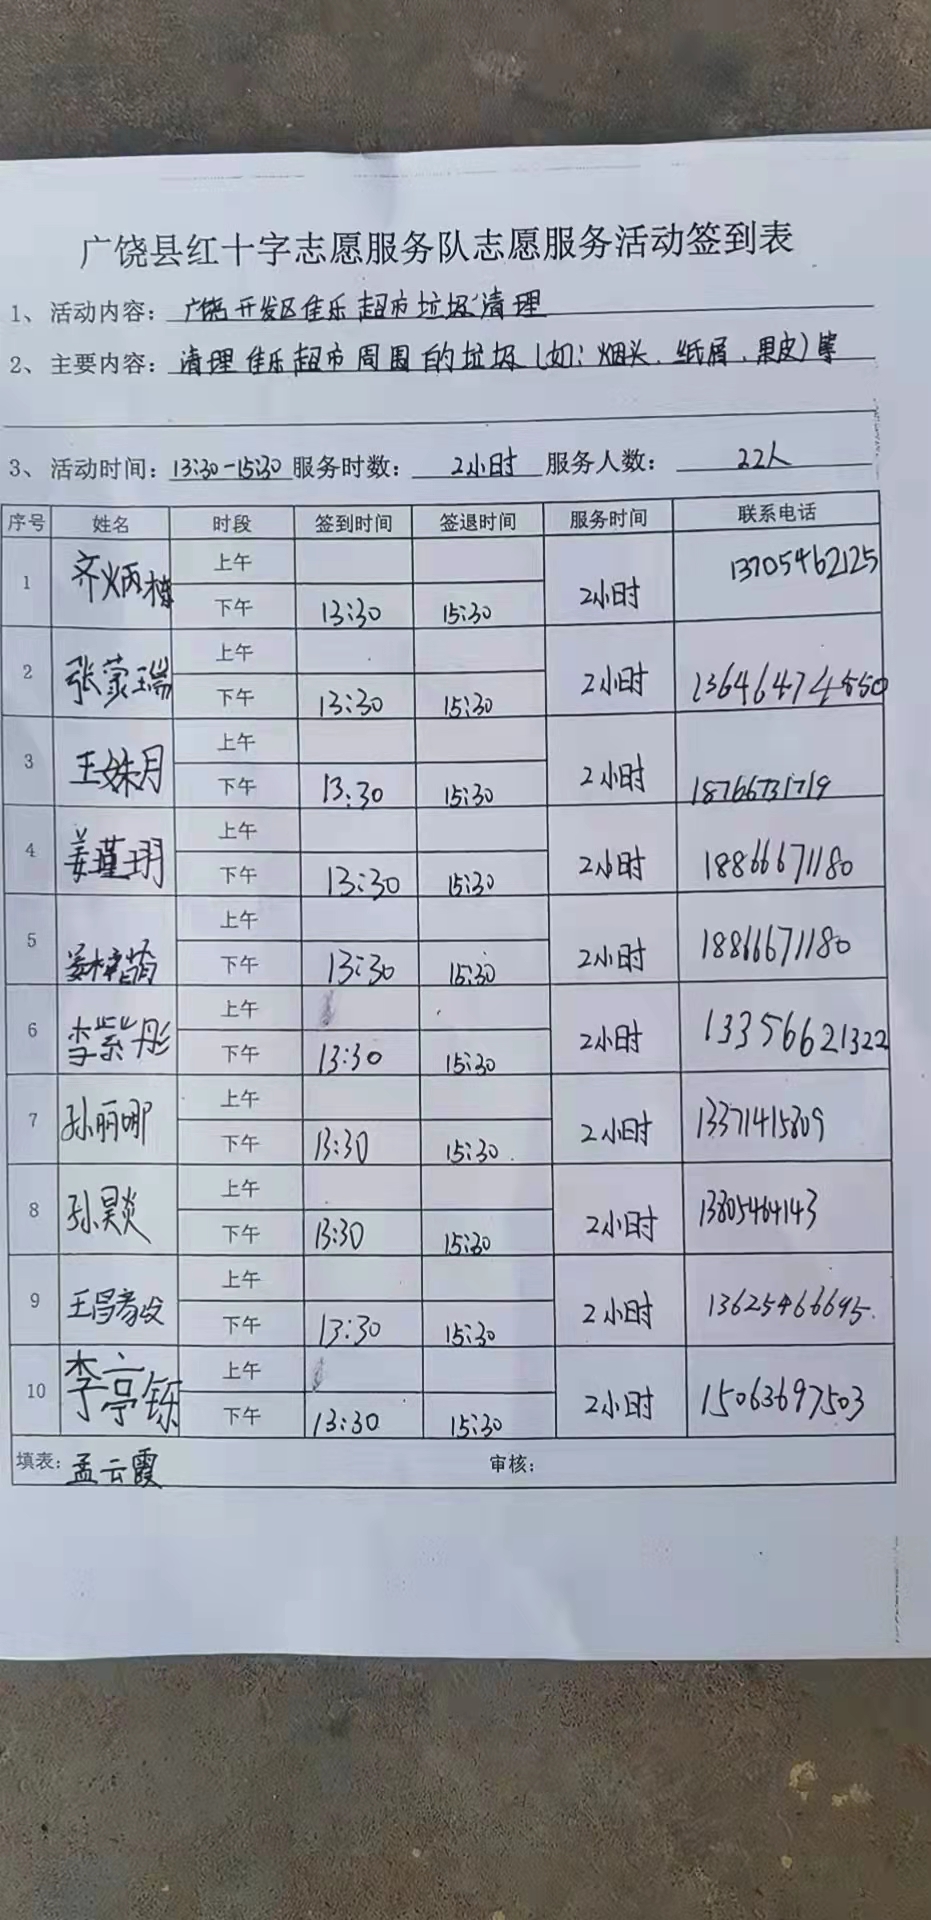 广饶县红十字志愿服务队志愿服务活动签到表
1、活动内容：广饶开发区佳乐超市垃圾清理
2、主要内容：清理佳乐超市周围的垃圾（如：烟头、纸屑、果皮）等
3、活动时间：13:30-15:30 服务时数：2小时 服务人数：22人
序号 姓名 时段 签到时间 签退时间 服务时间 联系电话
1 齐炳楠 上午
下午 13:30 15:30 2小时 13705462125
2 张蒙瑞 上午
下午 13:30 15:30 2小时 13646474550
3 王姝月 上午
下午 13:30 15:30 2小时 18766731719
4 姜瑾玥 上午
下午 13:30 15:30 2小时 18866671180
5 上午
下午 13:30 15:30 2小时 18866671180
6 李紫彤 上午
下午 13:30 15:30 2小时 13356621322
7 孙丽娜 上午
下午 13:30 15:30 2小时 13371415809
8 孙昊炎 上午
下午 13:30 15:30 2小时 13805464143
9 上午
下午 13:30 15:30 2小时 13625466695
10 李亭铄 上午
下午 13:30 15:30 2小时 15063697503
填表：孟云霞 审核：